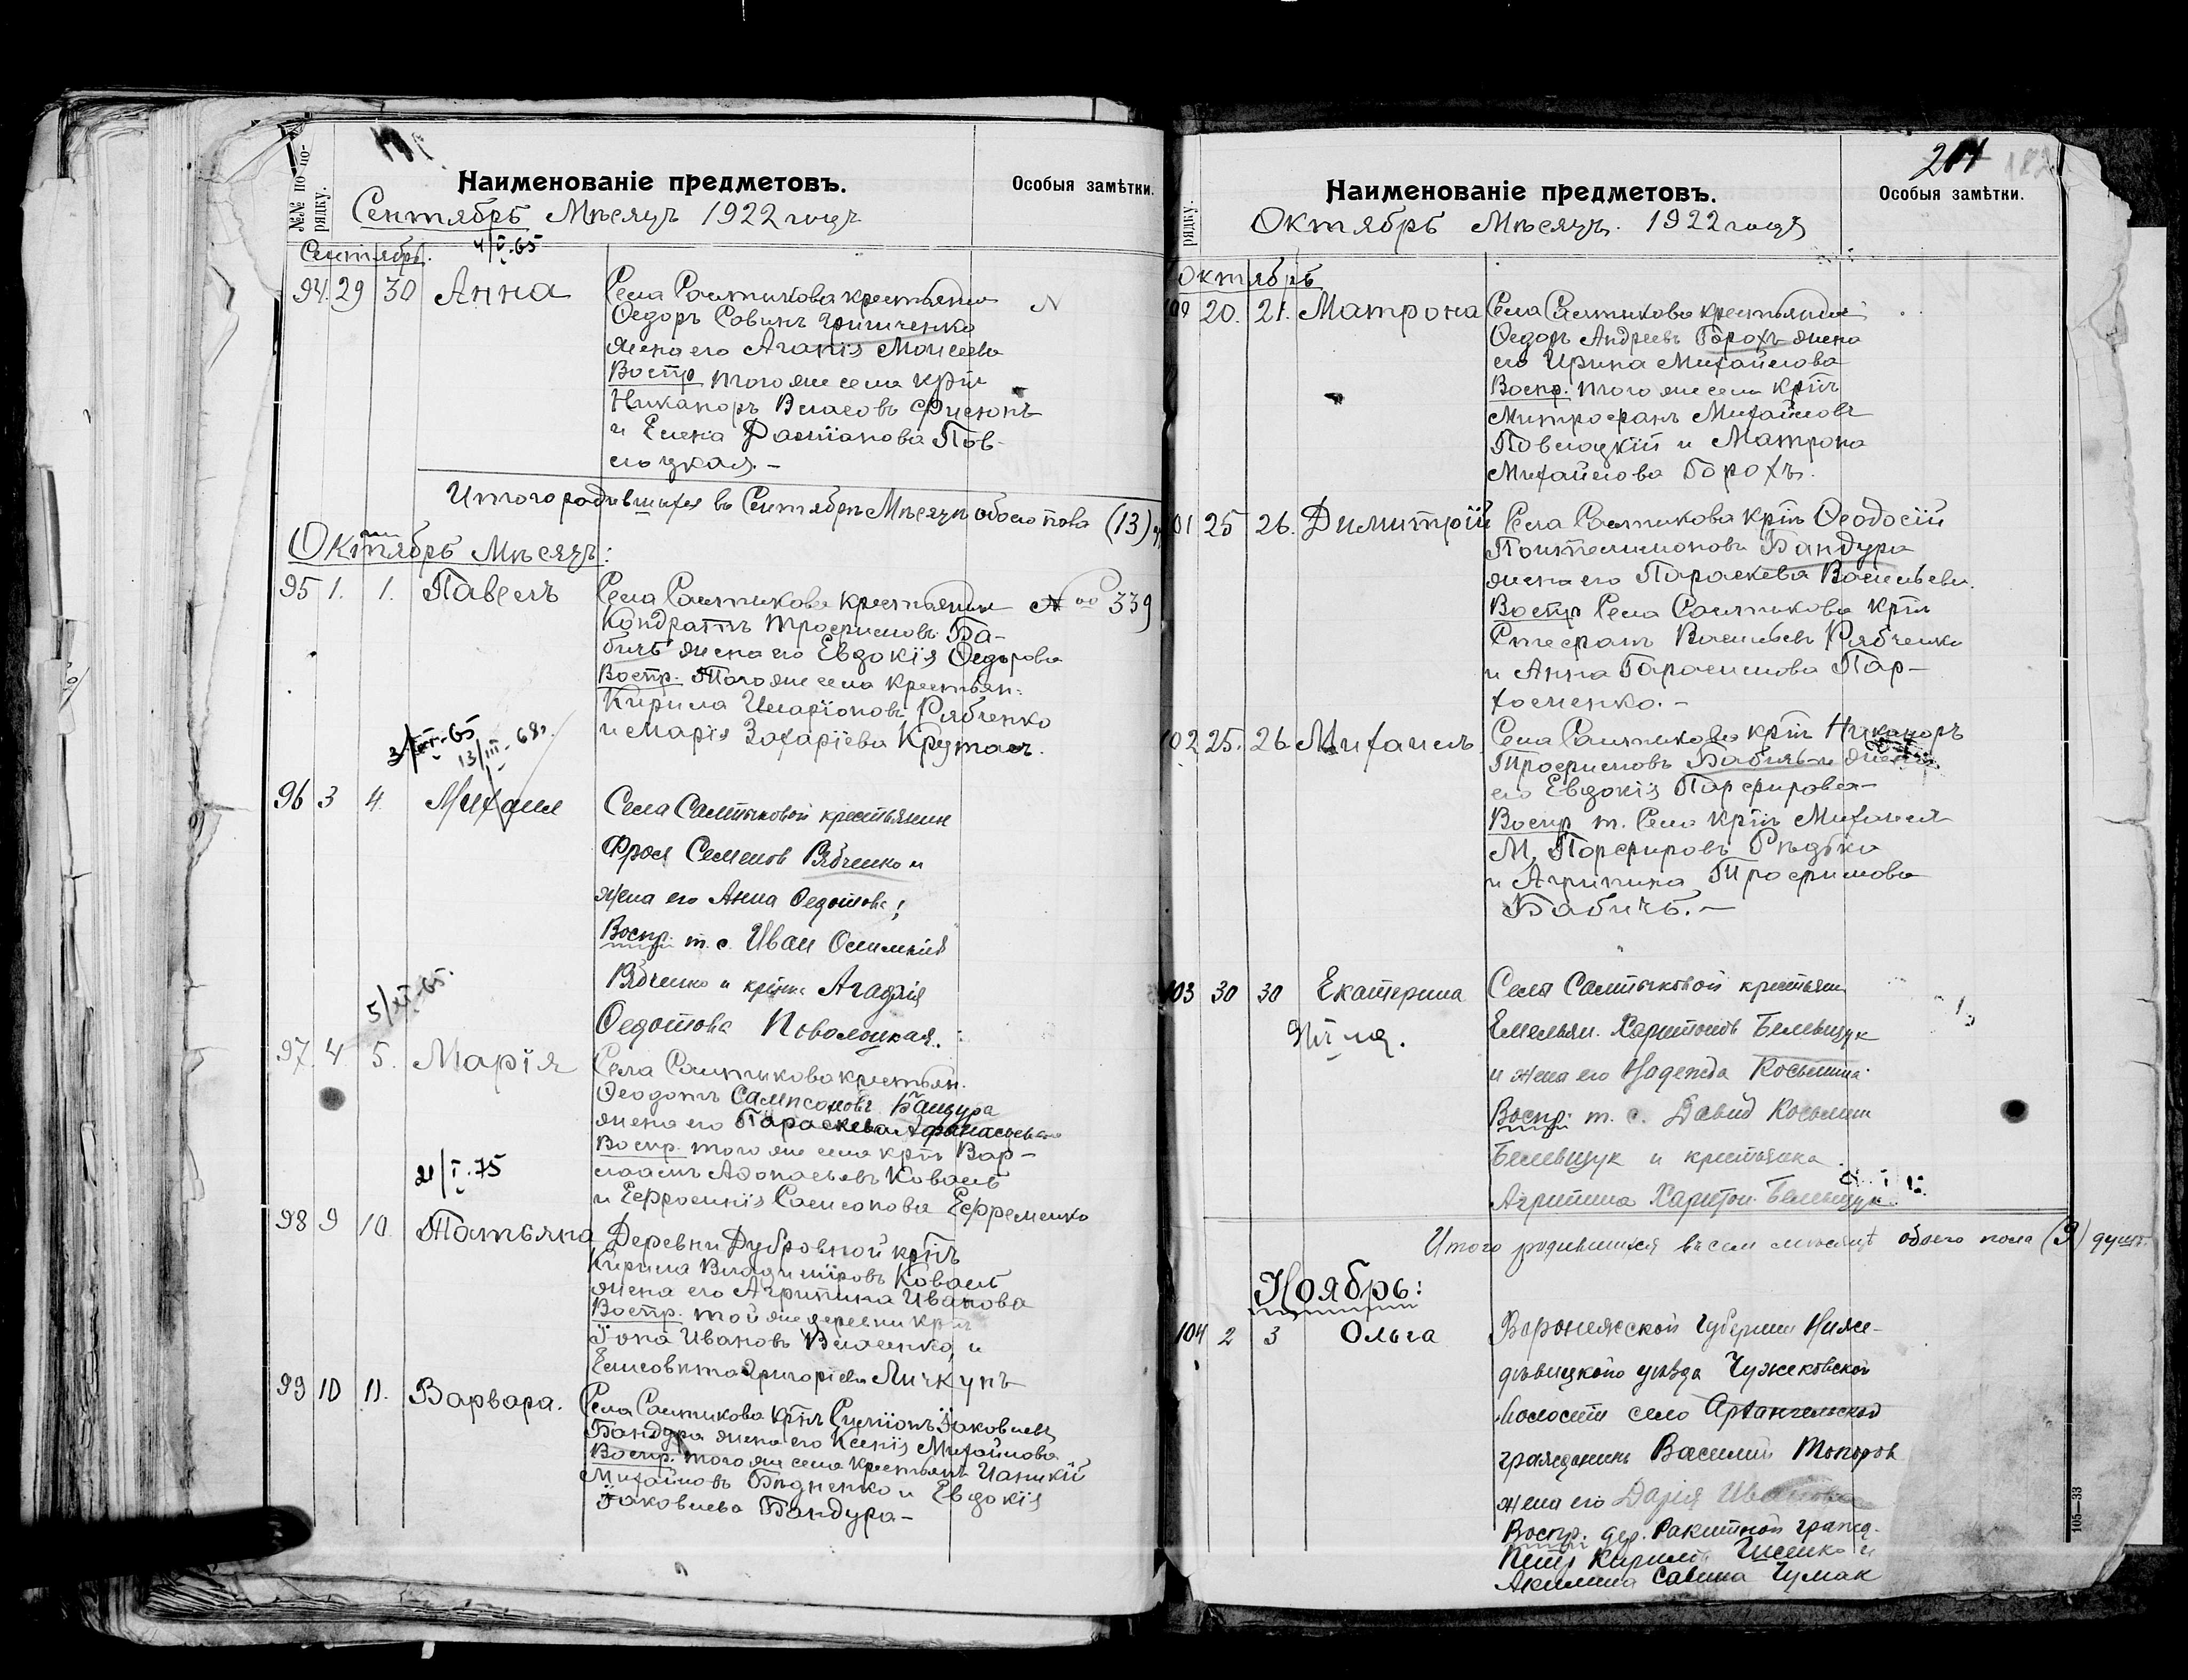 №№ по по-
рядку.
Наименованіе предметовъ.
Особыя замѣтки.
Сентябрь Мѣсяцъ 1922 года
Сентябрь. 4/V.65
94. 29 30 Анна Села Салтыкова крестьянин
Ѳедоръ Савинъ Гришченко
жена его Агапія Моисеева
Воспр. того же села кртн
Никаноръ Власовъ Фисюнъ
и Елена Даміанова Пов-
лоцкая. –
Итого родившихся въ Сентябрѣ Мѣсяцѣ обоего пола (13)
Октябрь Мѣсяцъ:
95 1. 1. Павелъ Села Салтыкова крестьянин № 339
Кондратъ Трофимовъ Ба-
бичъ жена его Евдокія Ѳедорова
Воспр. Того же села крестьян.
Кирила Иларіоновъ Рябченко
и Марія Захаріева Крутась.
13/III-68г.
96 3 4. Михаил Села Салтыковой крестьянин
Фрол Семенов Рябченко и
жена его Анна Ѳедотова;
Воспр. т. с. Иван
Рябченко и Агафія
Ѳедотова Поволоцкая.
5/XI-65.
97. 4. 5. Марія Села Салтыкова крестьян.
Ѳеодотъ Сампсоновъ Бандура
жена его Параскева Афанасьева
Воспр. того же села кртн Вар-
лаамъ Афонасьевъ Коваль
и Ефросинія Самсонова Ефременко
21/I.75
98 9 10. Татьяна Деревни Дубровной кртнъ
Кирила Владиміровъ Коваль
жена его Агрипина Иванова
Воспр. той же деревни кртн
Іона Ивановъ Власенко, и
Елисовѣта Григоріева Личкунъ
99 10 11. Варвара. Села Салтыкова кртнъ Симіонъ Іаковлевъ
Бандура жена его Ксенія Михайлова
Воспр. того же села крестьянъ Іаникій
Михайловъ Бѣдненко и Евдокія
Іаковлева Бандура –
рядку.
Наименованіе предметовъ.
Особыя замѣтки.
Октябрь Мѣсяцъ. 1922 года
Октябрь
20. 21. Матрона Села Салтыкова крестьянин
Ѳедоръ Андреевъ Горохъ жена
его Ирина Михайлова
Воспр. того же села кртнъ
Митрофанъ Михайловъ
Повлоцкій и Матрона
Михайлова Горохъ.
101 25 26. Димитрій Села Салтыкова кртнъ Ѳеодосій
Бандура
жена его Параскева Васильева.
Воспр. Села Салтыкова кртн
Стефанъ Васильевъ Рябченко
и Анна Гарасимова Пар-
хоменко. –
102 25. 26. Михаилъ Села Салтыкова кртнъ Никаноръ
Трофимовъ Бабичъ и жена
его Евдокія Парфирова –
Воспр. т. Села кртнъ Михаилъ
М. Порфировъ Рѣдько
и Агрипина Трофимова
Бабичъ. –
103 30 30 Екатерина Села Салтыковой крестьян
Емельян. Харитонов Белевщук
и жена его Надежда Косьмина
Воспр. т. с. Давид Косьмин
Белевщук и крестьянка
Агрипина Харитон. Белевщук.
Итого родившихся въ сем мѣсяцѣ обоего пола (9) душъ.
Ноябрь:
104 2 3 Ольга Воронежской Губернии Ниже-
дѣвицкого уѣзда
волости село Архангельской
гражданинъ Василий Топоров
жена его Дарія Иванова
Воспр. дер. Ракитной гражд.
Акилина Савина Чумак
105—33